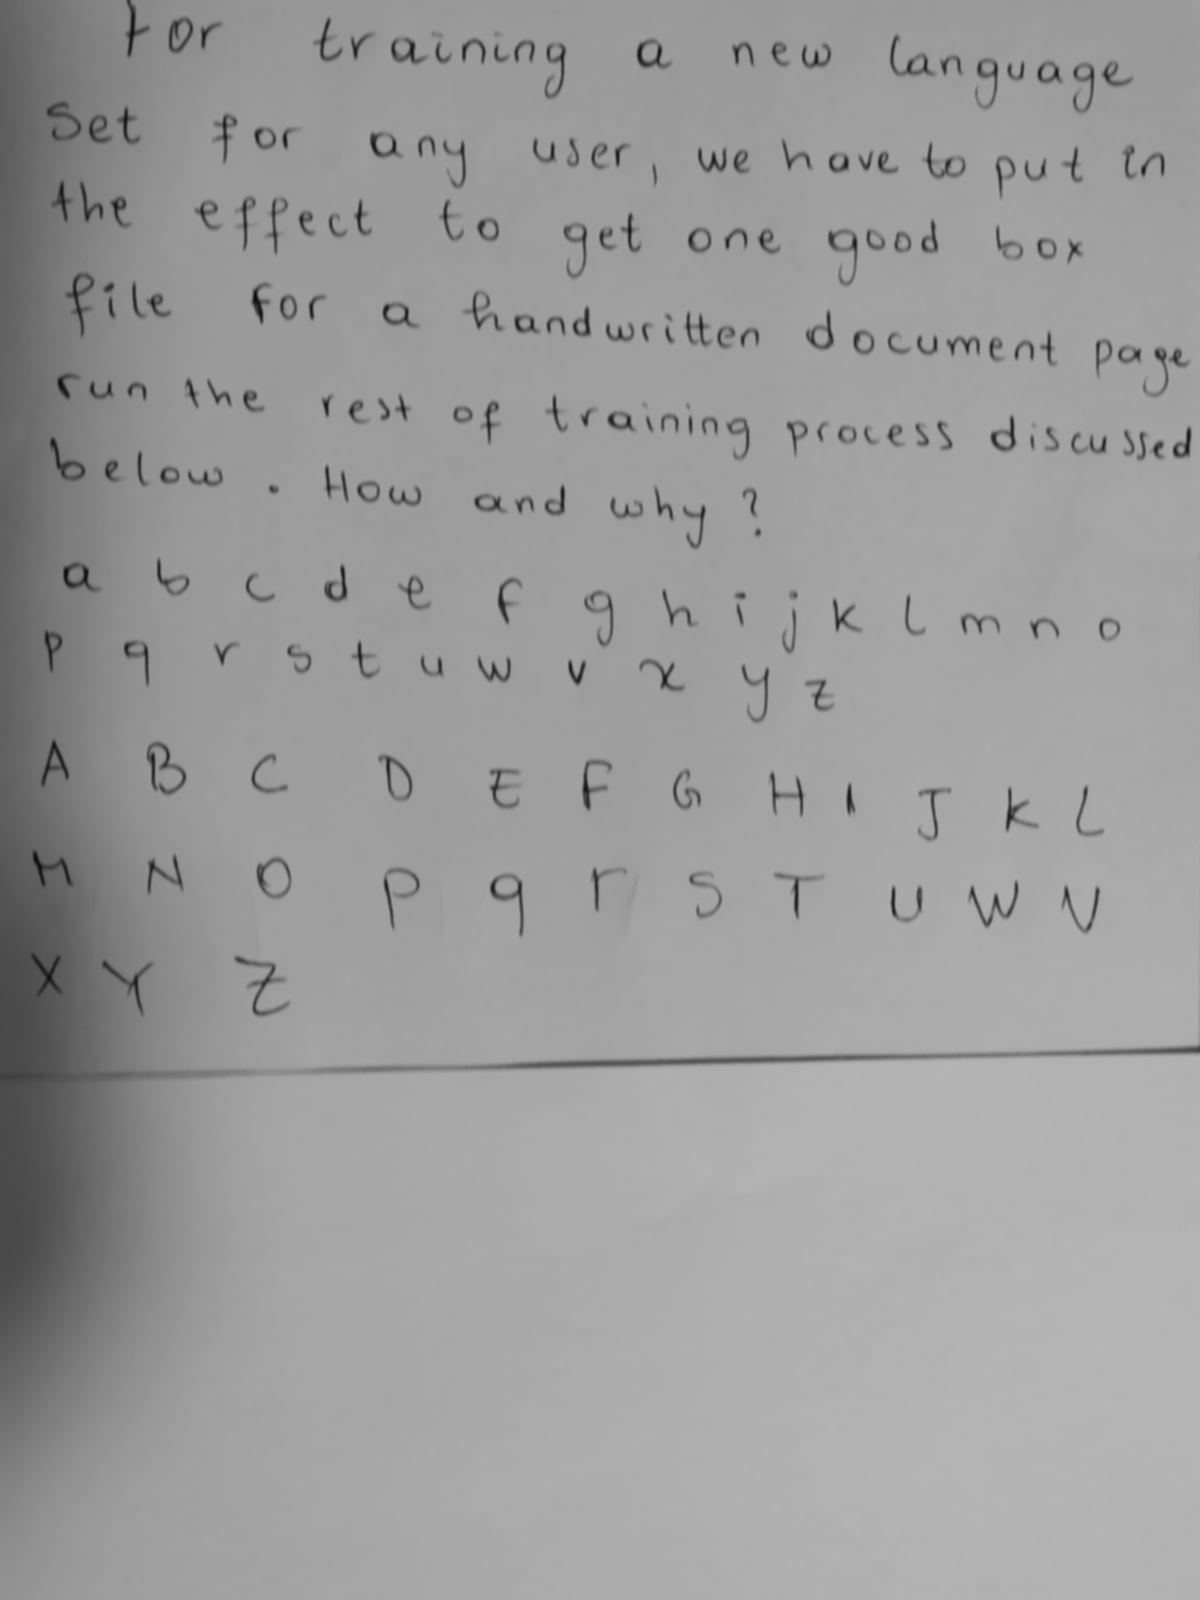 For training a new language
Set for any user, we have to put in
the effect to get one good box
file for a handwritten document page
run the rest of training process discussed
below. How and why?
a b c d e f g h i j k l m n o
p q r s t u w v x y z
A B C D E F G H I J K L
M N O P q r S T U W V
X Y Z